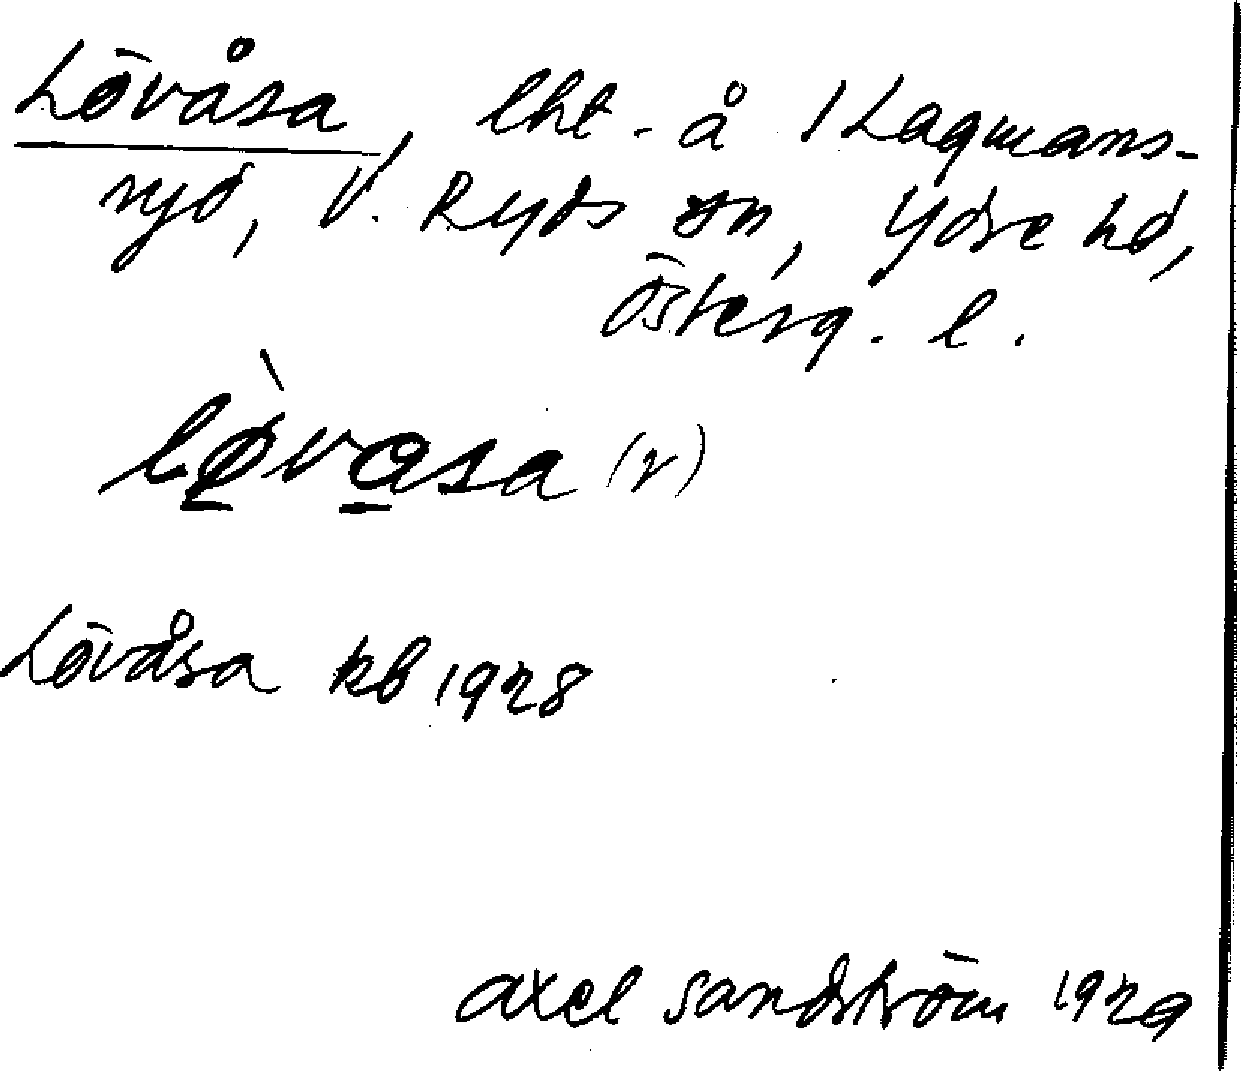 Lövåsa, lht. å 1 Lagmans-
ryd, V. Ryds sn, Ydre hd,
Österg. l.
lø̀vasa (r)
Lövåsa kb 1928
Axel Sandström 1929